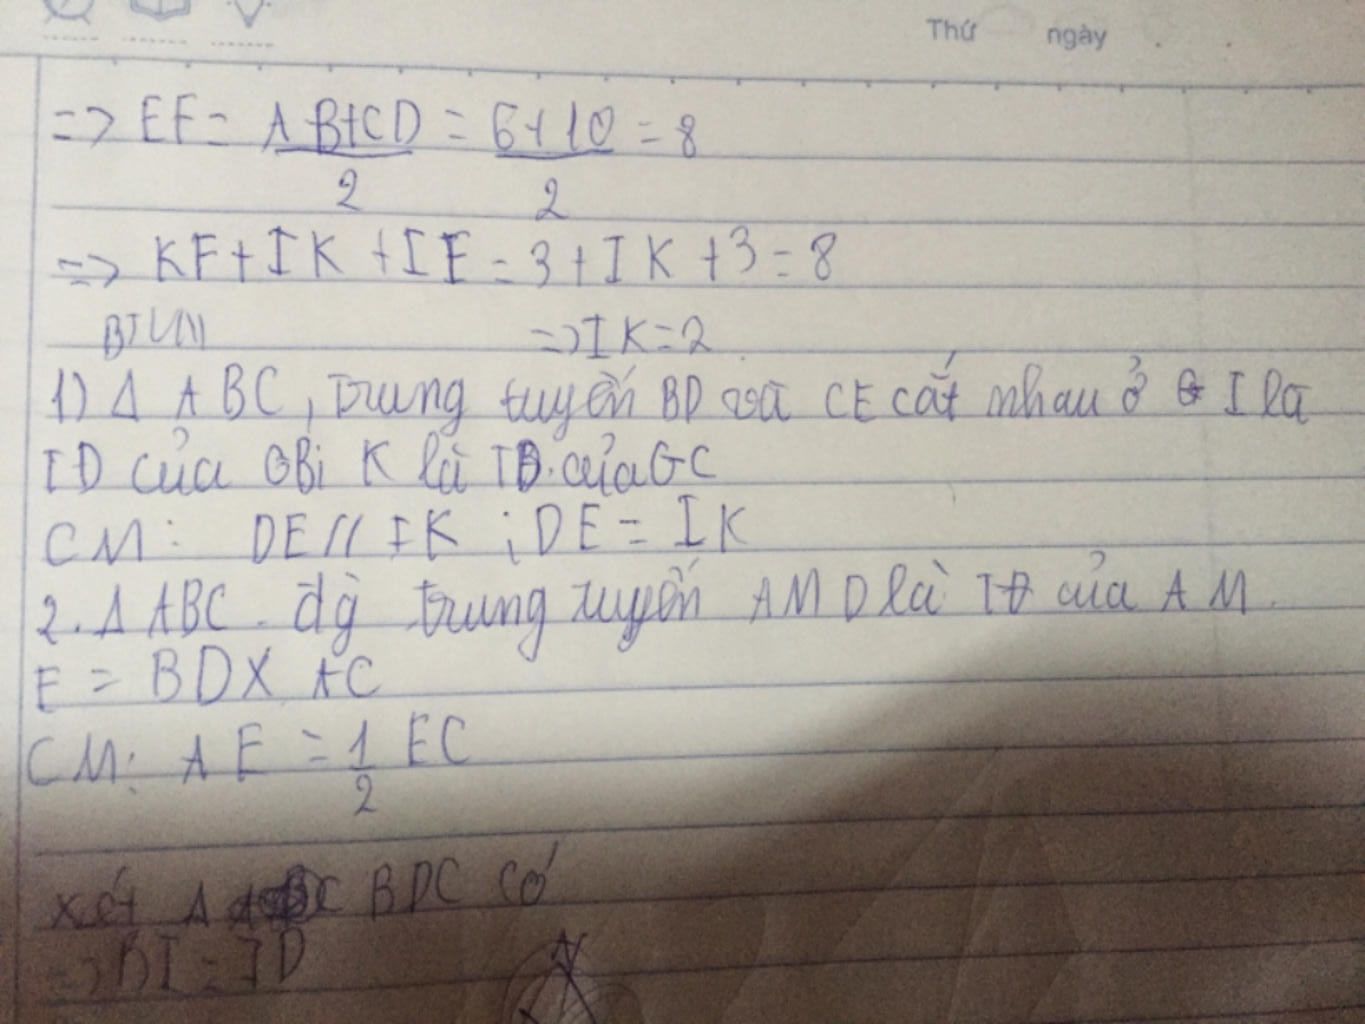 Thứ ngày
=> EF = AB+CD/2 = 6+10/2 = 8
=> KF + IK + IE = 3 + IK + 3 = 8
BTVN => IK = 2
1) Δ ABC, trung tuyến BD và CE cắt nhau ở G I là
TĐ của GBi K là TĐ. của GC
CM: DE // IK ; DE = IK
2. Δ ABC. đg trung tuyến AM D là TĐ của AM.
E = BD X AC
CM: AE = 1/2 EC
xét Δ BDC có
=> BI = ID
A